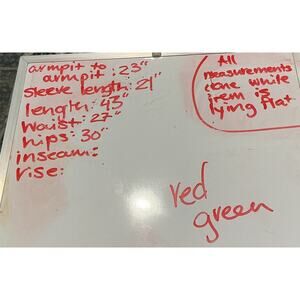 armpit to
armpit: 23"
sleeve length: 21"
length: 43"
waist: 27"
hips: 30"
inseam:
rise:
All
measurements
done while
item is
lying flat
red
green